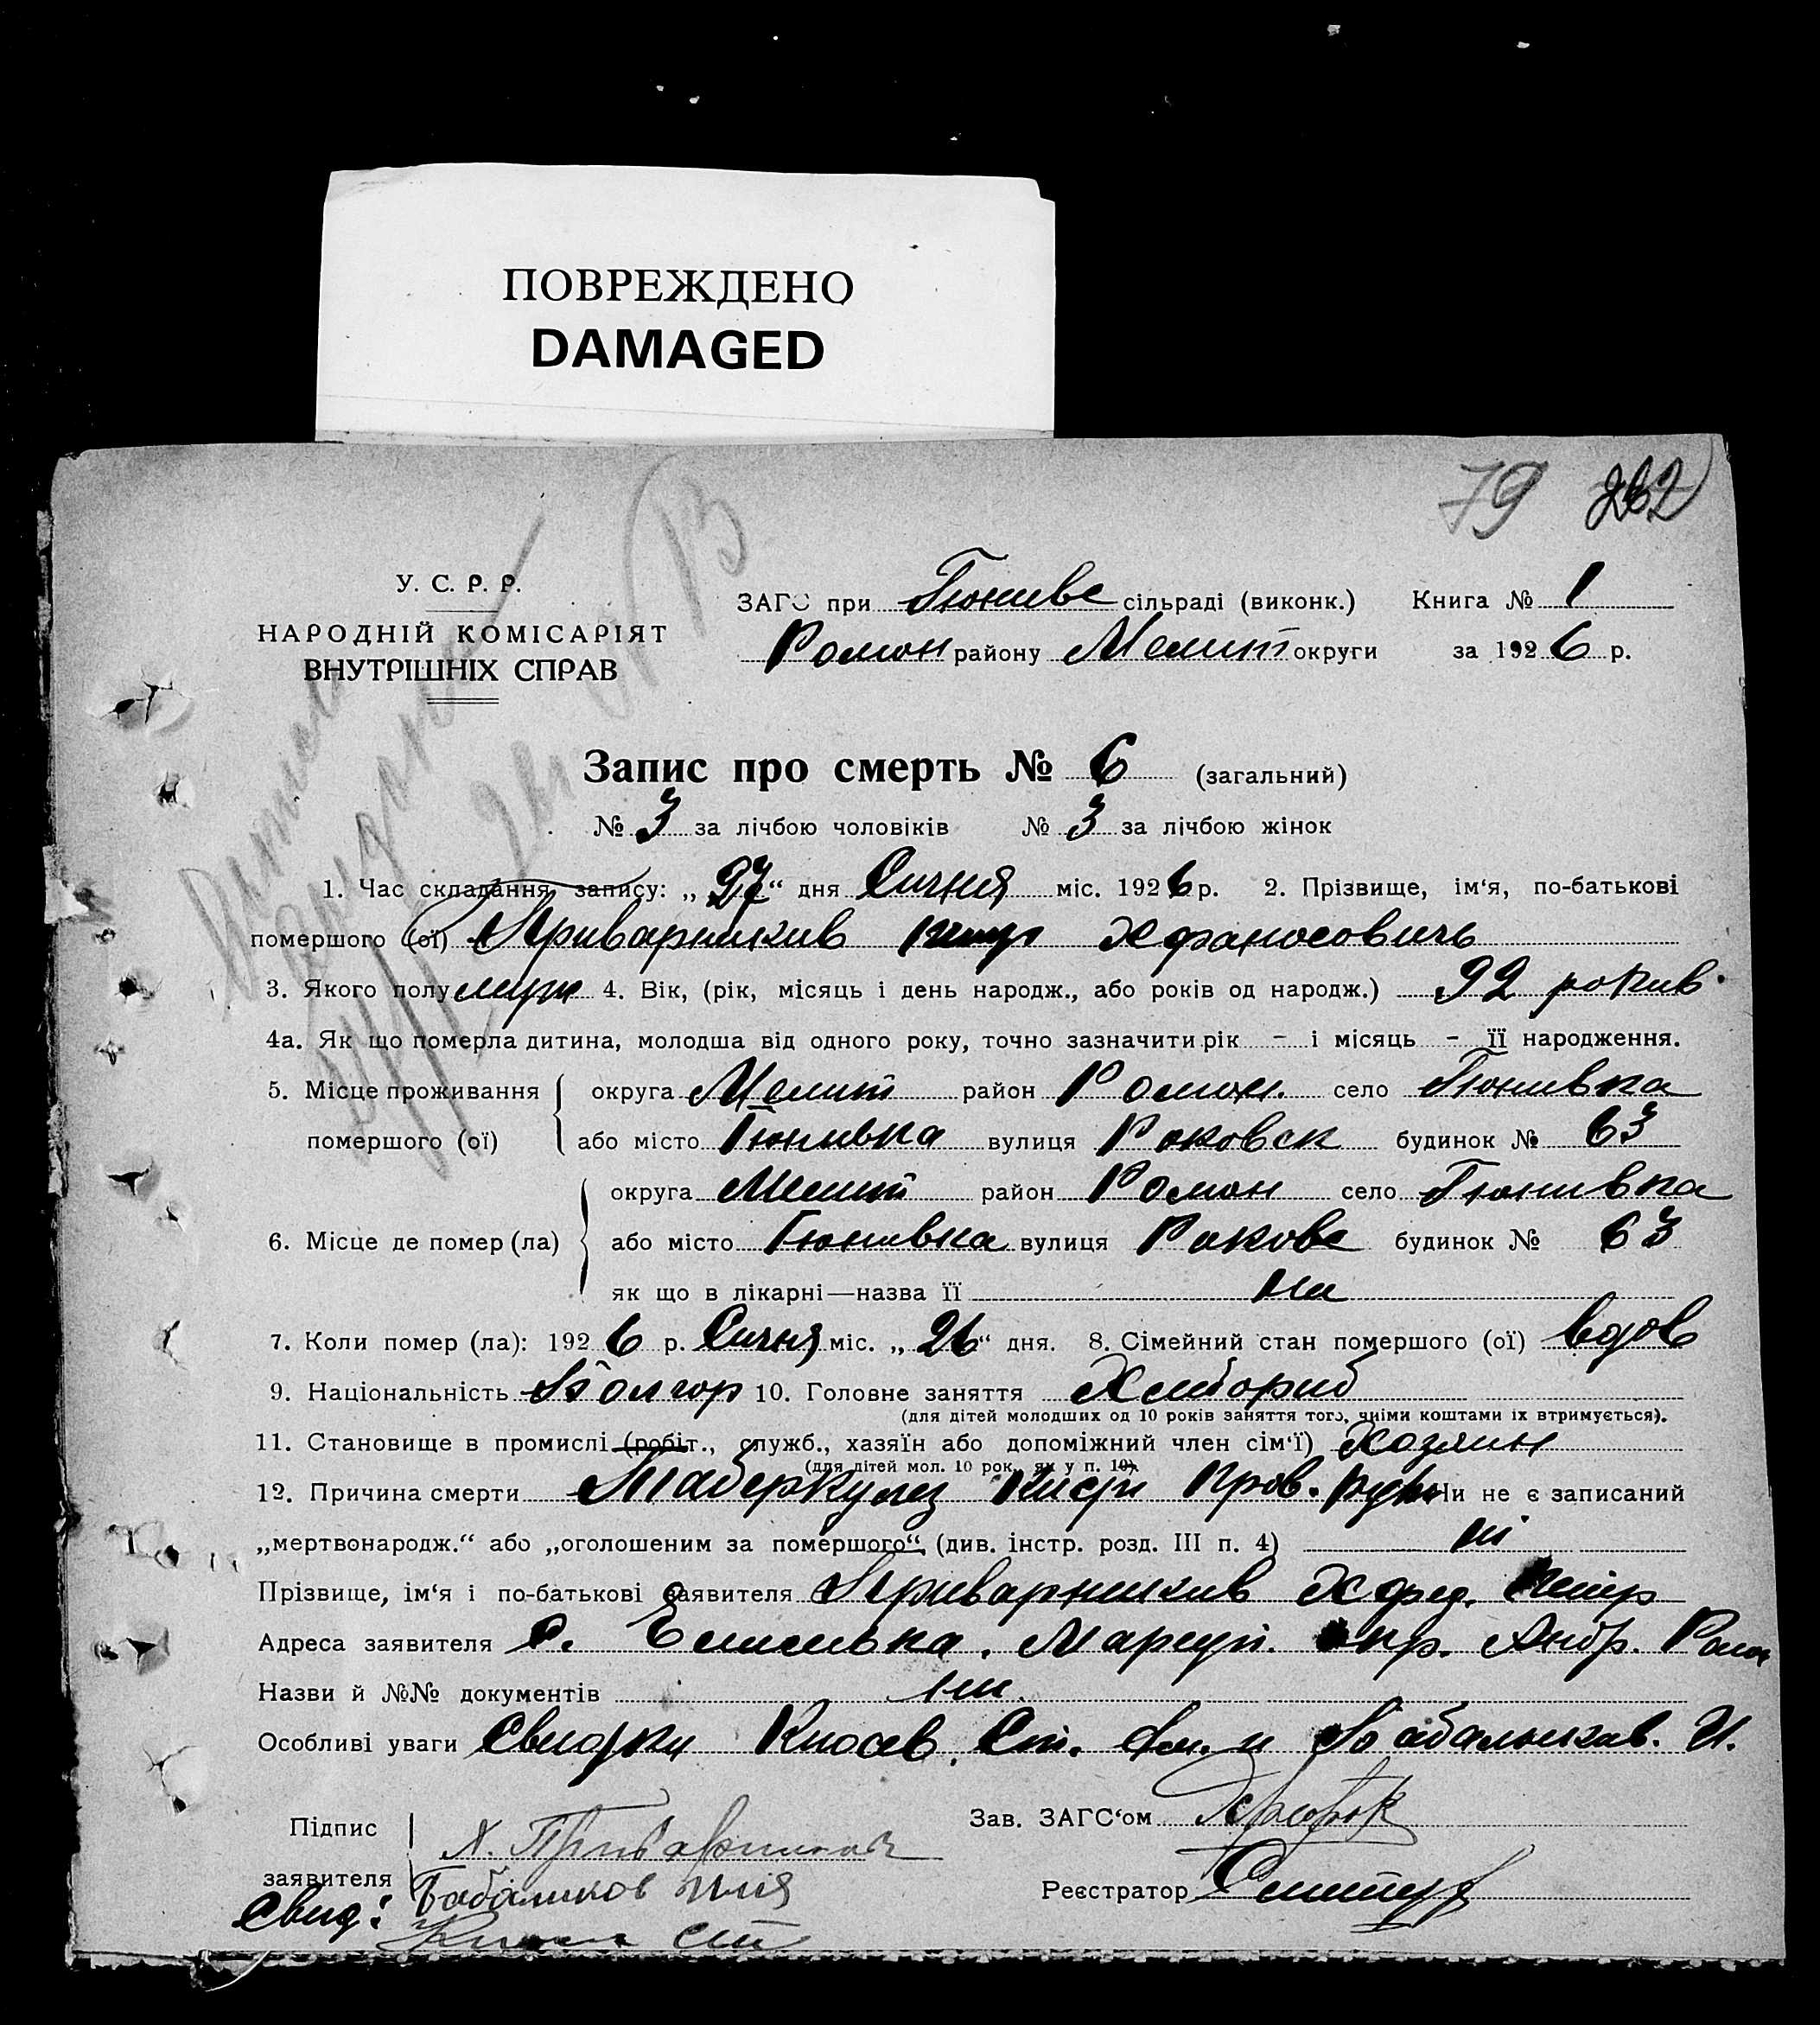 ПОВРЕЖДЕНО
DAMAGED
79 262
У. С. Р. Р.
НАРОДНІЙ КОМІСАРІЯТ
ВНУТРІШНІХ СПРАВ
ЗАГС при Гюнивс сільраді (виконк.) Книга № 1
Ромон району Мелит округи за 1926 р.
Запис про смерть № 6 (загальний)
№ 3 за лічбою чоловіків № 3 за лічбою жінок
1. Час складання запису: „27“ дня Сичня міс. 1926 р. 2. Прізвище, ім‘я, по-батькові
помершого (ої) Приварникив Афаносовичь
3. Якого полу муж 4. Вік, (рік, місяць і день народж., або років од народж.) 92 рокив.
4а. Як що померла дитина, молодша від одного року, точно зазначити рік - і місяць - її народження.
5. Місце проживання округа Мелит район Ромон. село Гюнивка
помершого (ої) або місто Гюнивка вулиця Роковск будинок № 63
округа Мелит район Ромон село Гюнивка
6. Місце де помер (ла) або місто Гюнивка вулиця Роковс будинок № 63
як що в лікарні—назва її ни
7. Коли помер (ла): 1926 р. Сичня міс. „26“ дня. 8. Сімейний стан помершого (ої) вдов
9. Національність Болгор 10. Головне заняття Хлибориб
(для дітей молодших од 10 років заняття того, чиїми коштами їх втримується).
11. Становище в промислі (робіт., служб., хазяїн або допоміжний член сім‘ї) Хозяин
(для дітей мол. 10 рок., як у п. 10).
12. Причина смерти Таберкулез Пров. Чи не є записаний
„мертвонародж.“ або „оголошеним за помершого“ (див. інстр. розд. III п. 4) ні
Прізвище, ім‘я і по-батькові заявителя Приварникив Петр
Адреса заявителя с. Мариуп. окр. Андр. Рано
Назви й №№ документів ни
Особливі уваги Свидки Кносев. Ст. и Бабаликав. И.
Підпис
заявителя
Зав. ЗАГС‘ом
Бабаликов Илія
Реєстратор
Свид: